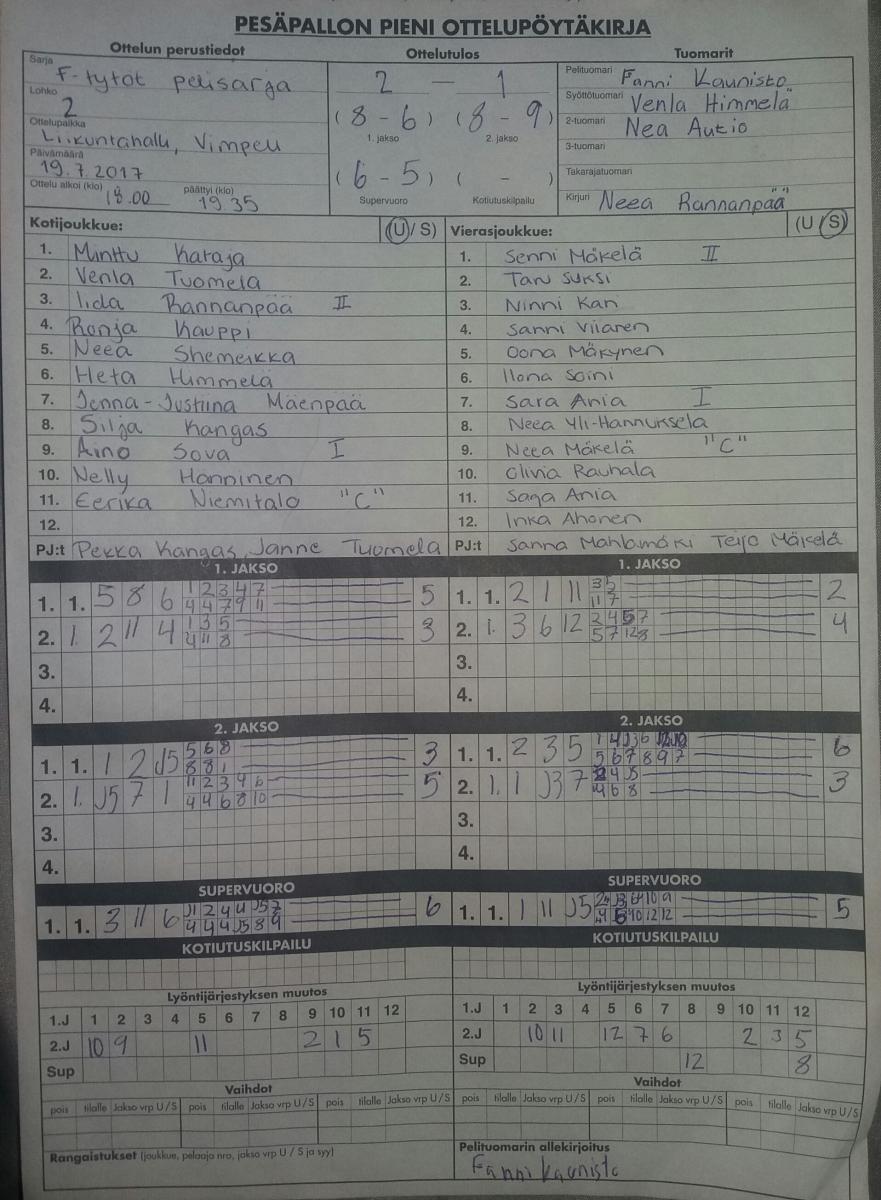 PESÄPALLON PIENI OTTELUPÖYTÄKIRJA
Ottelun perustiedot
Sarja F-tytöt pelisarja
Lohko 2
Ottelupaikka Liikuntahalli, Vimpeli
Päivämäärä 19.7.2017
Ottelu alkoi (klo) 18.00 päättyi (klo) 19.35
Ottelutulos
2 — 1
(8 - 6) (8 - 9)
1. jakso 2. jakso
(6 - 5) ( - )
Supervuoro Kotiutuskilpailu
Tuomarit
Pelituomari Fanni Kaunisto
Syöttötuomari Venla Himmelä
2-tuomari Nea Autio
3-tuomari
Takarajatuomari
Kirjuri Neea Rannanpää
Kotijoukkue: (U/S)
1. Minttu Kataja
2. Venla Tuomela
3. Iida Rannanpää II
4. Ronja Kauppi
5. Neea Shemeikka
6. Heta Himmelä
7. Jenna-Justiina Mäenpää
8. Silja Kangas
9. Aino Sova I
10. Nelly Hänninen
11. Eerika Niemitalo "C"
12.
PJ:t Pekka Kangas, Janne Tuomela
Vierasjoukkue: (U/S)
1. Senni Mäkelä II
2. Taru Suksi
3. Ninni Kari
4. Sanni Viiaren
5. Oona Mäkynen
6. Ilona Soini
7. Sara Ania I
8. Neea Yli-Hannuksela
9. Neea Mäkelä "C"
10. Olivia Rauhala
11. Saga Ania
12. Inka Ahonen
PJ:t Sanna Mahlamäki Teijo Mäkelä
1. JAKSO
1. 1. 5 8 6 1 2 3 4 7 5
4 4 7 9 11
2. 1. 2 11 4 1 3 5 3
4 11 8
3.
4.
1. JAKSO
1. 1. 2 1 11 3 5 2
11 7
2. 1. 3 6 12 2 4 5 7 4
5 7 12 8
3.
4.
2. JAKSO
1. 1. 1 2 J5 5 6 8 3
8 8 1
2. 1. J5 7 1 11 2 3 4 6 5
4 4 6 8 10
3.
4.
2. JAKSO
1. 1. 2 3 5 1 4 J3 6 6
5 6 7 8 9 7
2. 1. 1 J3 7 2 4 J5 3
4 6 8
3.
4.
SUPERVUORO
1. 1. 3 11 6 J1 2 4 4 J5 7 6
4 4 4 J5 8 9
SUPERVUORO
1. 1. 1 11 J5 5
KOTIUTUSKILPAILU
KOTIUTUSKILPAILU
Lyöntijärjestyksen muutos
1.J 1 2 3 4 5 6 7 8 9 10 11 12
2.J 10 9 11 2 1 5
Sup
Lyöntijärjestyksen muutos
1.J 1 2 3 4 5 6 7 8 9 10 11 12
2.J 10 11 12 7 6 2 3 5
Sup 12 8
Vaihdot
pois tilalle Jakso vrp U/S pois tilalle Jakso vrp U/S pois tilalle Jakso vrp U/S
Vaihdot
pois tilalle Jakso vrp U/S pois tilalle Jakso vrp U/S pois tilalle Jakso vrp U/S
Rangaistukset (joukkue, pelaaja nro, jakso vrp U / S ja syy)
Pelituomarin allekirjoitus
Fanni Kaunisto